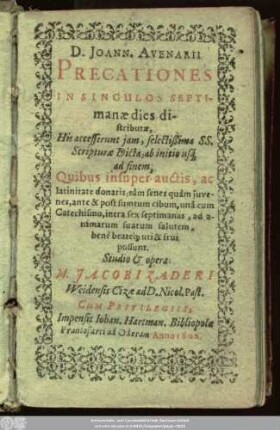 D. JOANN. AVENARII
PRECATIONES
IN SINGULOS SEPTI-
manæ dies di-
stributæ,
His accesserunt jam, selectissima SS.
Scripturæ Dicta, ab initio usq́;
ad finem,
Quibus insuper auctis, ac
latinitate donatis, tàm senes quàm juve-
nes, ante & post sumtum cibum, unà cum
Catechismo, intra sex septimanas, ad a-
nimarum suarum salutem,
benè beateq́; uti & frui
possunt.
Studio & opera:
M. JACOBI ZADERI
Weidensis Cizæ ad D. Nicol. Past.
CUM PRIVILEGIIS,
Impensis Johan. Hartman. Bibliopolæ
Francofurti ad Oderam Anno